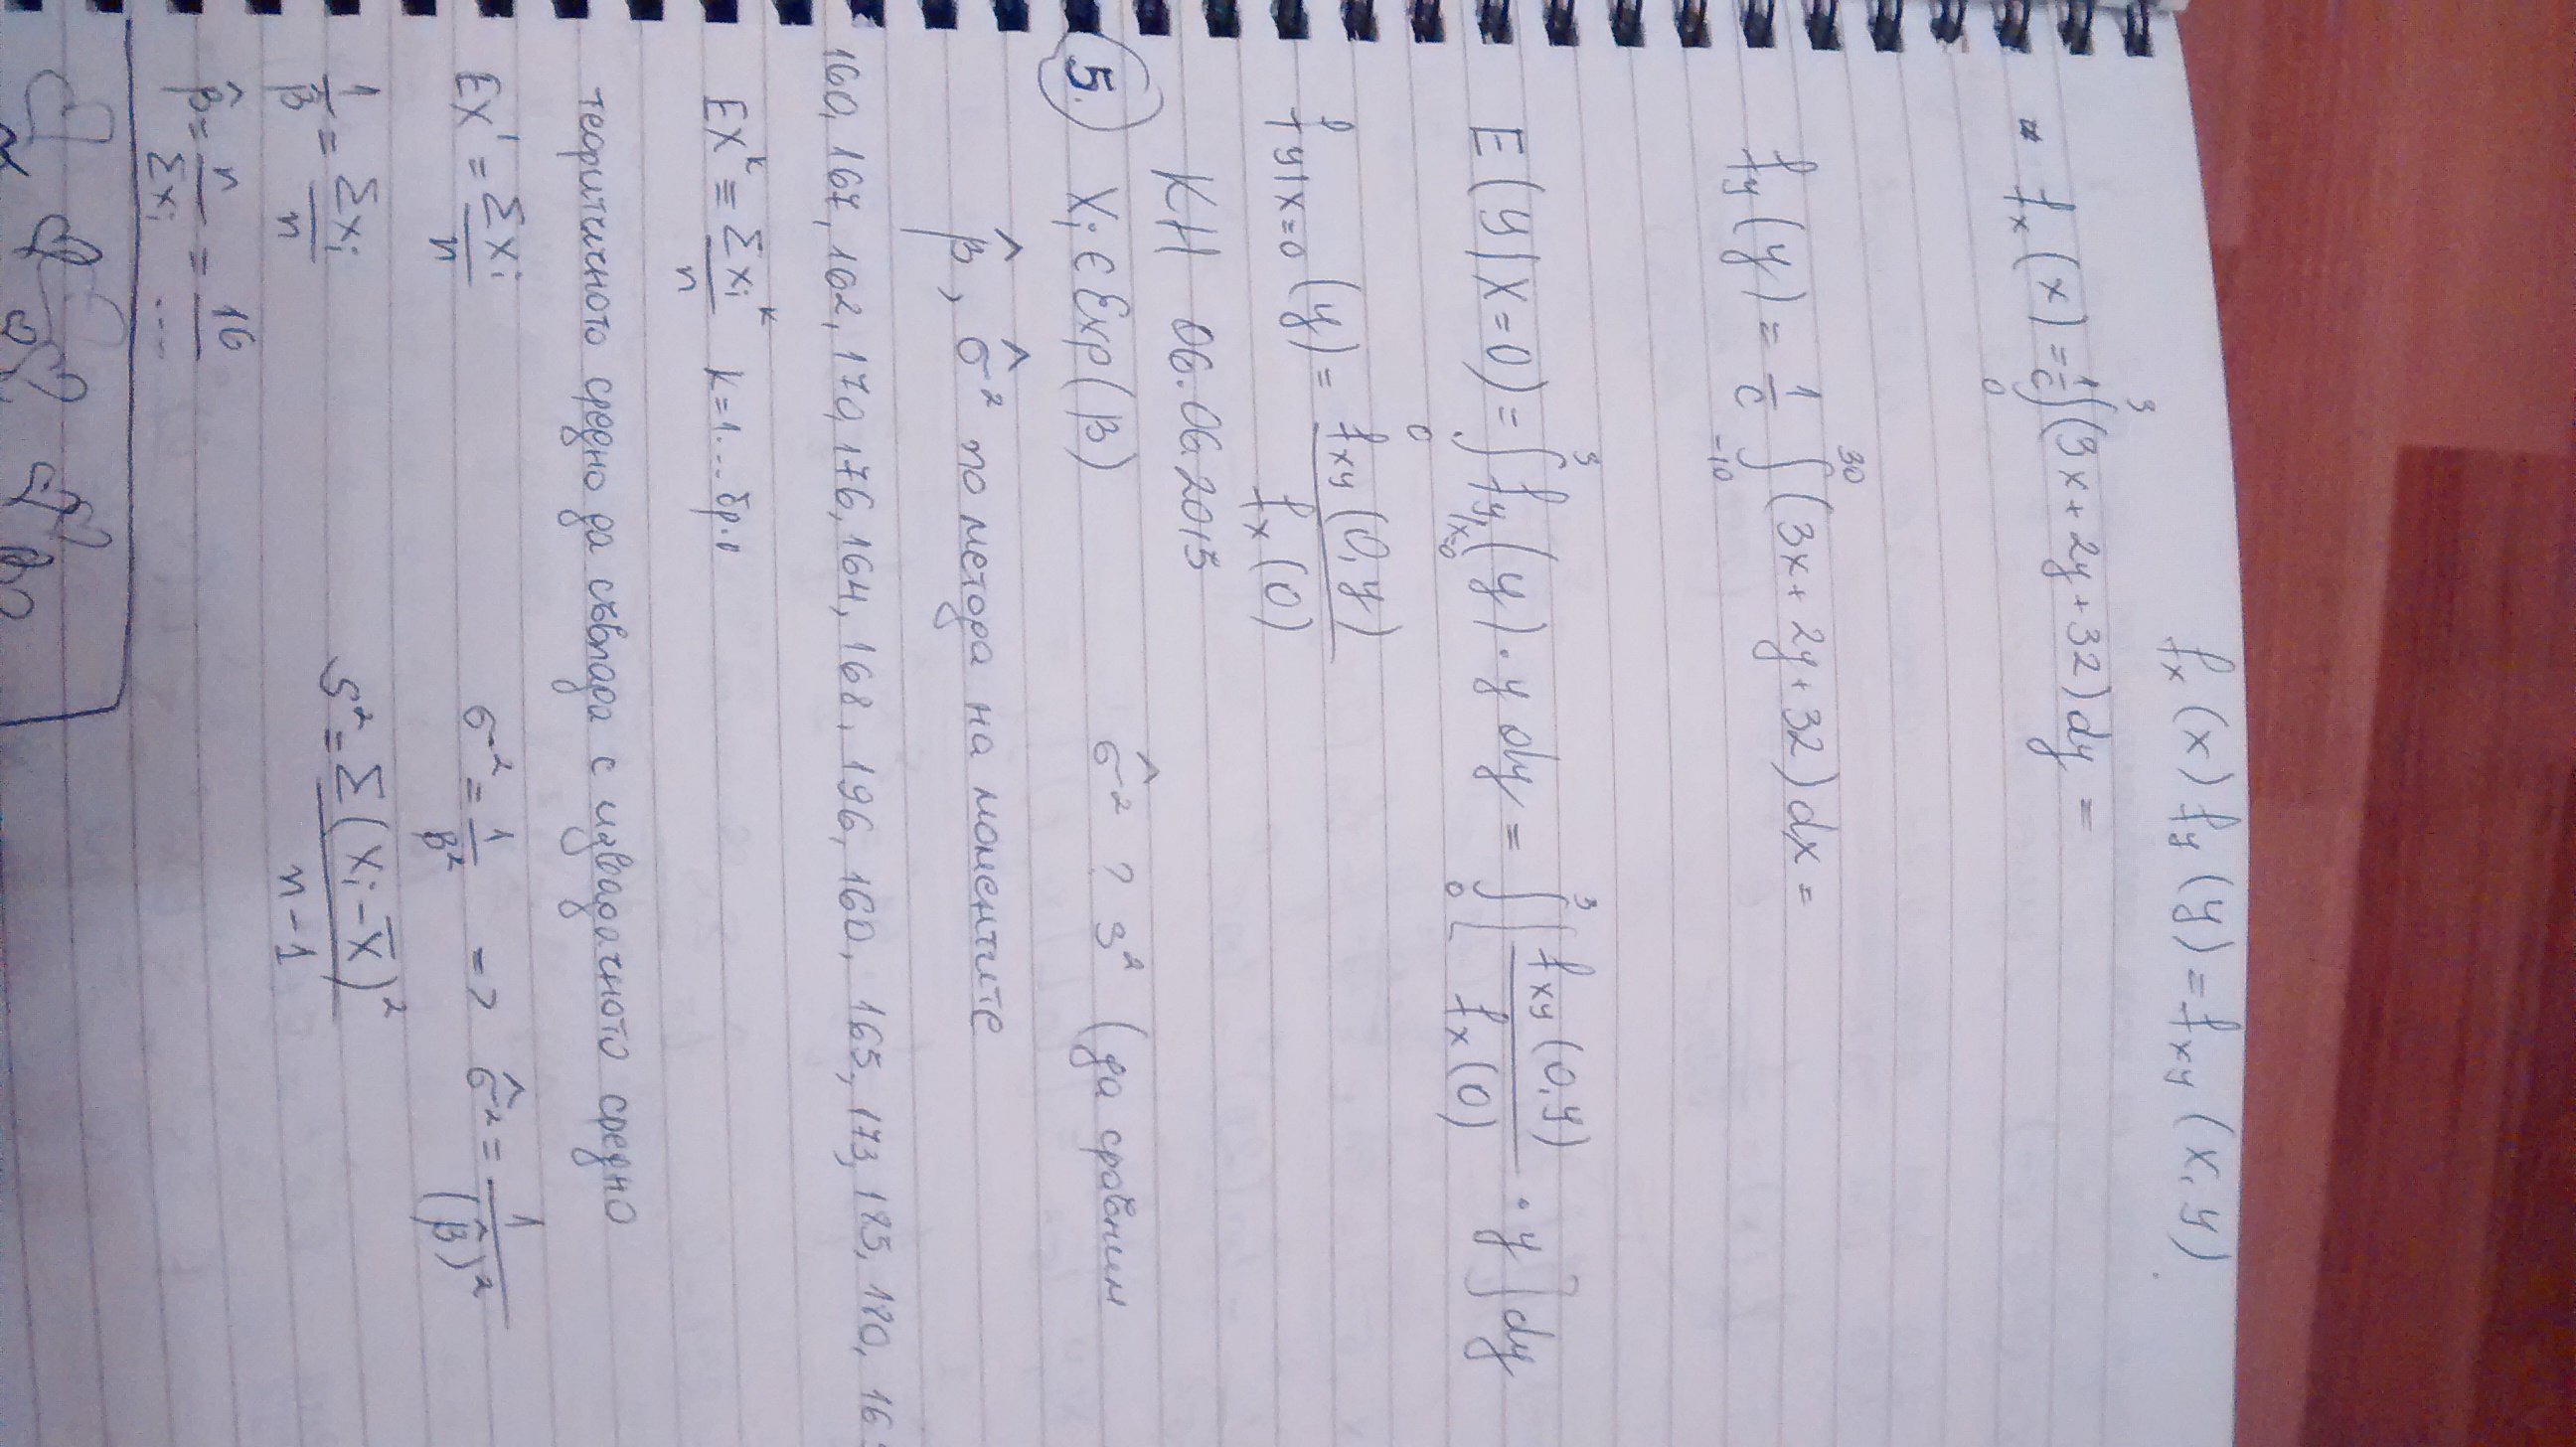 f_x(x) f_y(y) = f_xy(x,y)
" f_x(x) = 1/c ∫_0^3 (3x + 2y + 32) dy =
f_y(y) = 1/c ∫_-10^30 (3x + 2y + 32) dx =
E(y|X=0) = ∫_0^3 f_y|x=0(y) · y dy = ∫_0^3 [f_xy(0,y) / f_x(0) · y] dy
f_y|x=0(y) = f_xy(0,y) / f_x(0)
КН 06.06.2015
5. X_i ∈ Exp(β) σ̂² ? s² (да сравним
β̂, σ̂² по метода на моментите
160, 167, 162, 170, 176, 164, 168, 196, 160, 165, 173, 185, 180, 16
EX^k = Σx_i^k / n k=1...бр.
теоритичното средно да съвпада с извадачното средно
EX^1 = Σx_i / n σ² = 1/β² => σ̂² = 1/(β̂)²
1/β = Σx_i / n S² = Σ(x_i - X̄)² / n-1
β̂ = n / Σx_i = 16 / ...